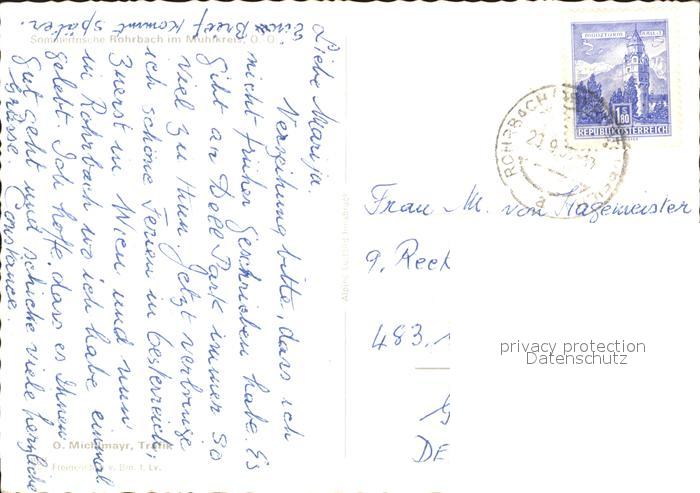 Einst Brief kommt später.
Sommerfrische Rohrbach im Mühlkreis, O. Ö.
Liebe Marija.
Verzeihung bitte, dass ich
nicht früher geschrieben habe. Es
gibt an Dell Park immer so
viel zu thun. Jetzt verbringe
ich schöne Ferien in Oesterreich,
Zuerst in Wien und nun
in Rohrbach wo ich habe einmal
gelebt. Ich hoffe, dass es Ihnen
gut geht und schicke viele herzliche
Grüsse
Constance.
O. Michlmayr, Trafik
Alpine Luftbild Innsbruck
MÜNZTURM HALL i. T.
1 S 80
REPUBLIK ÖSTERREICH
ROHRBACH
20.9.
Frau M. von Hagemeister
9. Rech
483.
DE
privacy protection
Datenschutz